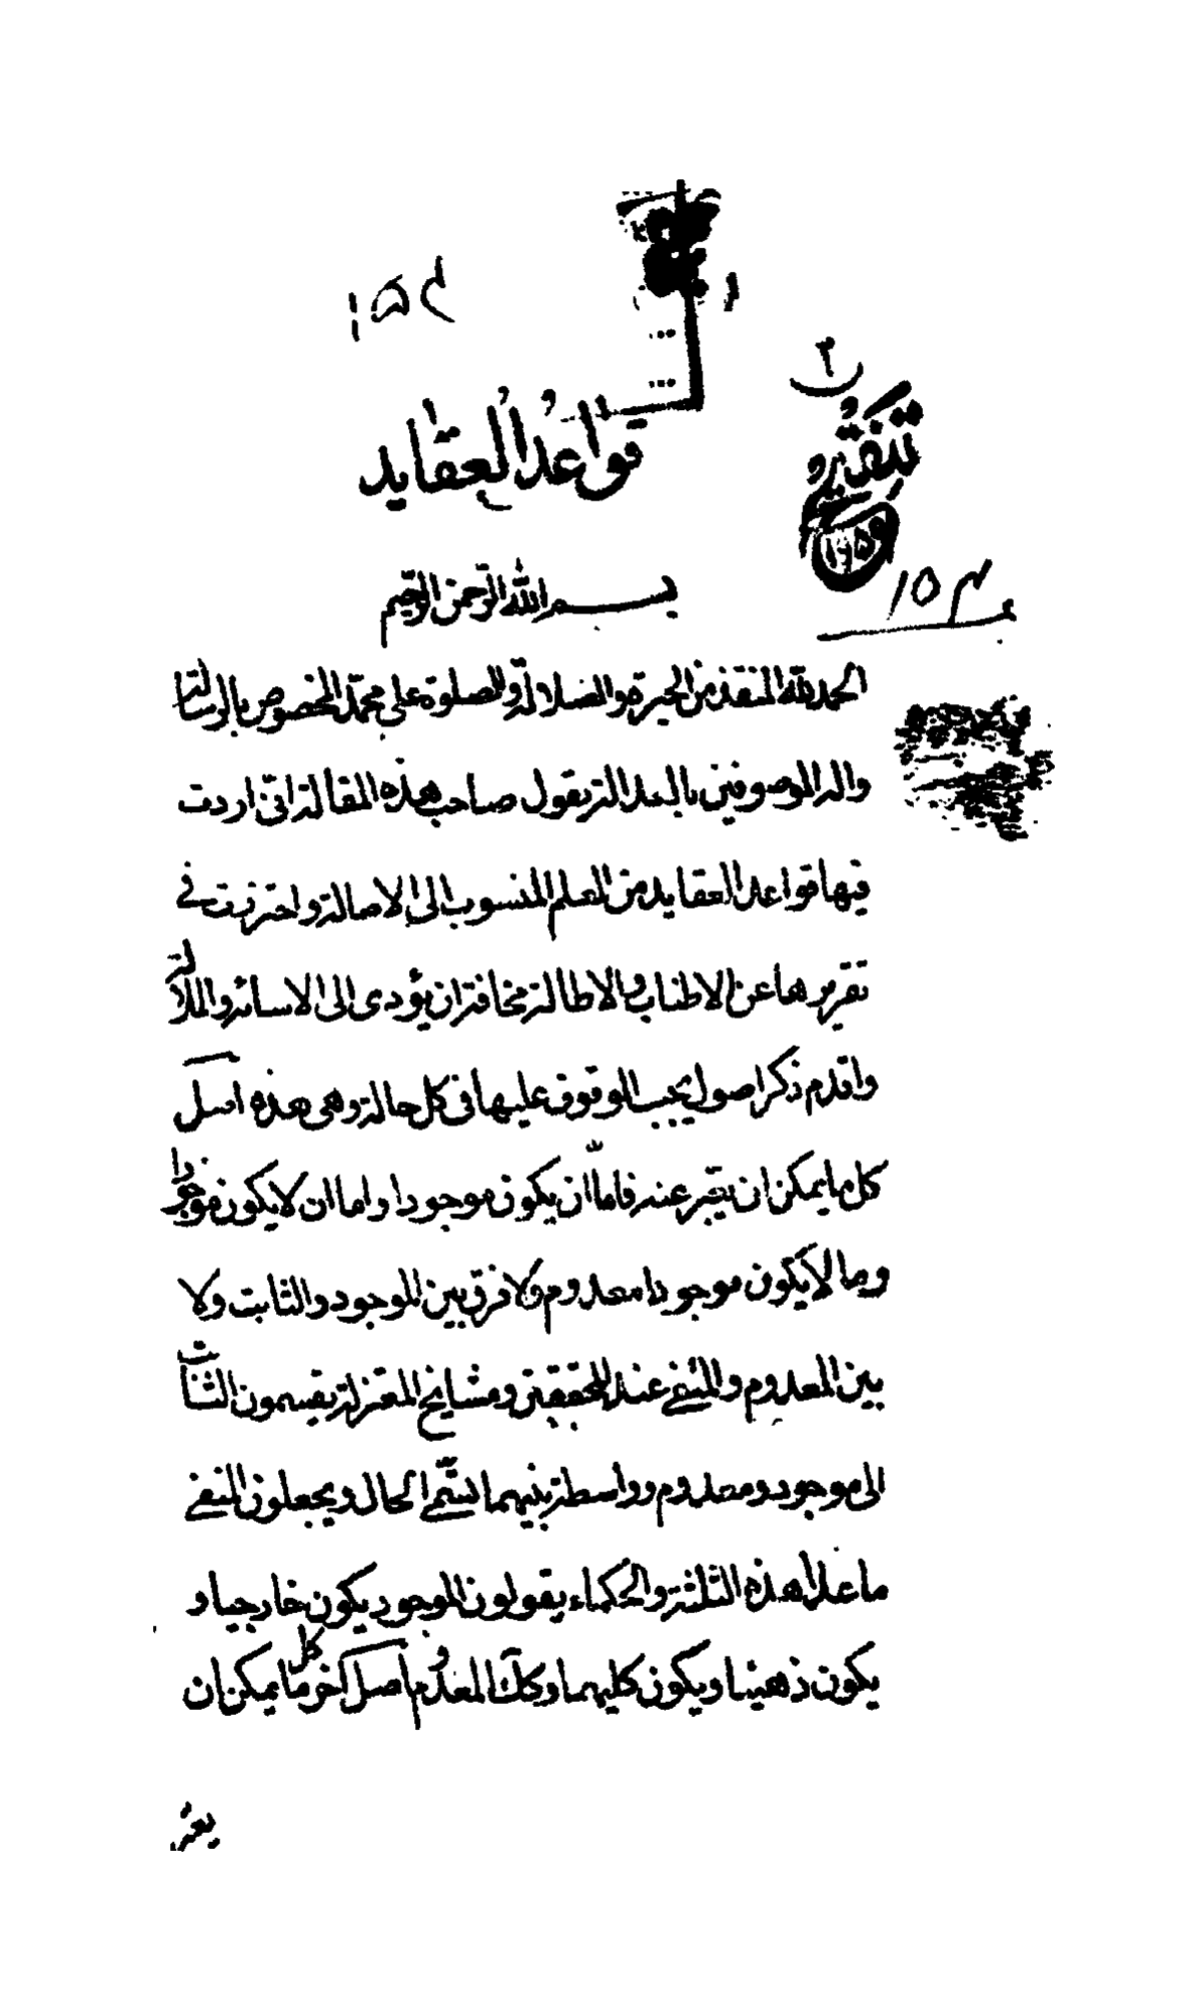 ١٥٤
٢
تنقيح
قواعد العقايد
١٥٤
بسم الله الرحمن الرحيم
الحمد لله المنقذ من الحيرة والضلالة والصلوة على محمد المخصوص بالرسالة
واله الموصوفين بالعدالة يقول صاحب هذه المقالة انى اردت
فيها قواعد العقايد من العلم المنسوب الى الاصالة واحترزت فى
تقريرها عن الاطناب والاطالة مخافة ان يؤدى الى الاسائه والملالة
واقدم ذكر اصول يجب الوقوف عليها فى كل حالة وهى هذه اصل
كل ما يمكن ان يعبر عنه فاما ان يكون موجودا واما ان لا يكون موجودا
وما لا يكون موجودا معدوم ولا فرق بين الموجود والثابت ولا
بين المعدوم والمنفى عند المحققين ومشايخ المعتزلة يقسمون الثابت
الى موجود ومعدوم وواسطة بينهما تسمى الحال ويجعلون المنفى
ما عدا هذه الثلثة والحكماء يقولون الموجود يكون خارجيا و
يكون ذهنيا ويكون كليهما وكك المعدوم اصل آخر كل ما يمكن ان
يعبر